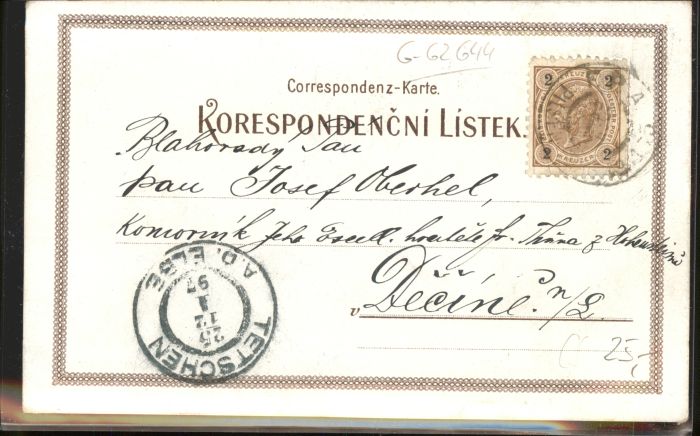 G-62644
Correspondenz-Karte.
KORESPONDENČNÍ LÍSTEK.
2 2
KREUZER
2 2
Blahorodý Pan
pan Josef Oberhel,
Komorník Jeho Excell. hraběte Fr. Thuna z Hohensteinů
v Děčíně n/L.
TETSCHEN
A.D. ELBE
25
12
97
25,-